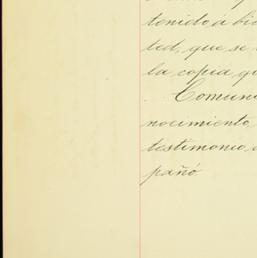 tenido á bie
ted, que se
la copia qu
Comuni
nocimiento,
testimonio,
pañó